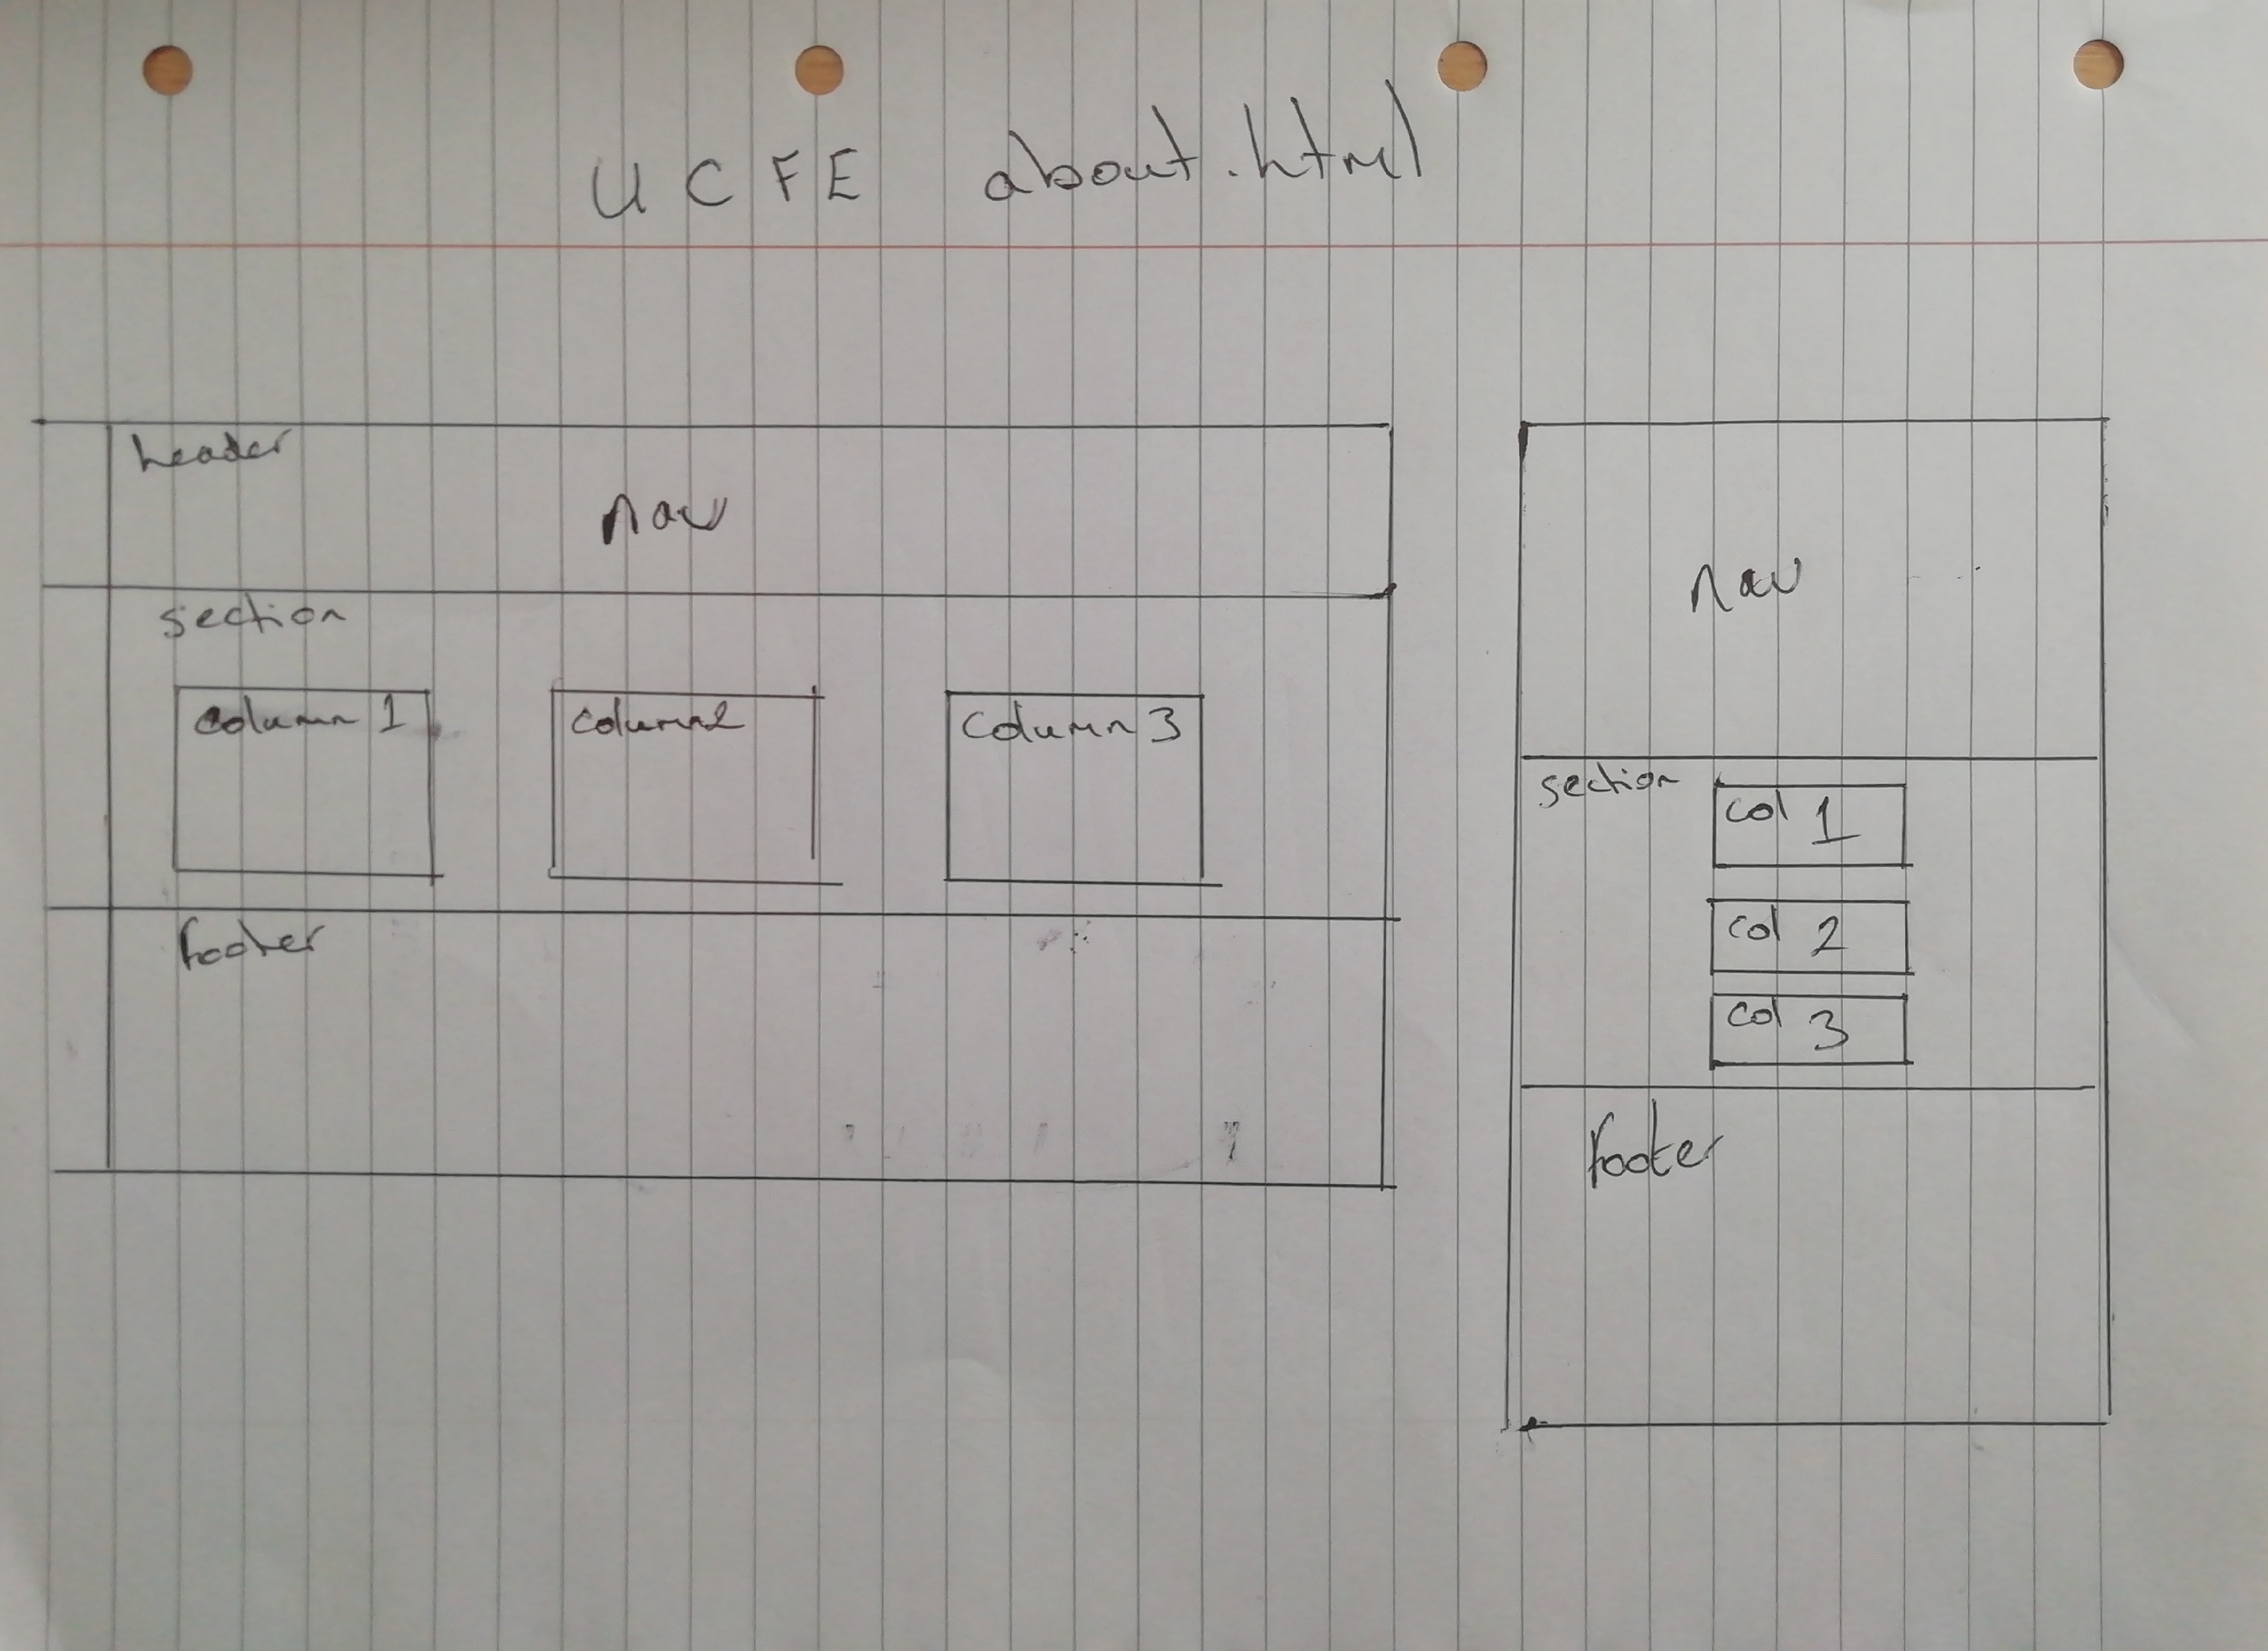 UCFE about.html
header
nav
section
column 1
column2
column 3
footer
nav
section
col 1
col 2
col 3
footer